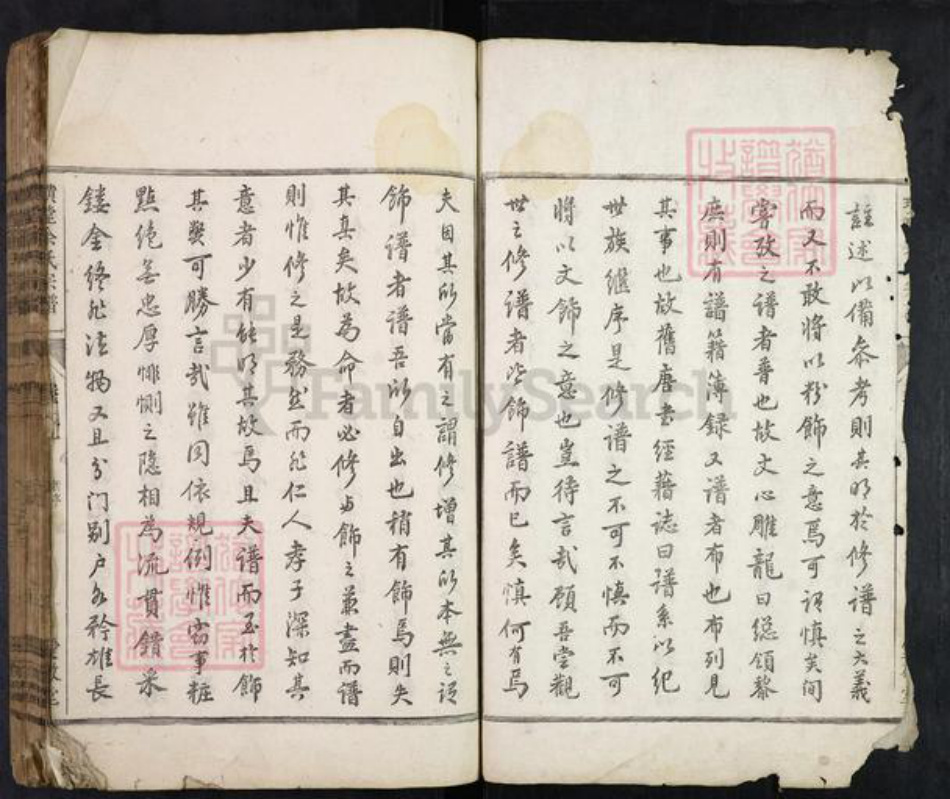 註述以備叅考則其明於修譜之大義
而又不敢將以粉飾之意焉可謂慎矣间
嘗攷之譜者普也故文心雕龍曰總領黎
庶則有譜籍簿録又譜者布也布列見
其事也故舊唐書經藉誌曰譜系以紀
世族继序是修譜之不可不慎而不可
將以文飾之意也豈待言哉顾吾嘗觀
世之修譜者皆飾譜而已矣慎何有焉
夫因其所當有之謂修增其所本無之谓
飾譜者譜吾所自出也稍有飾焉則失
其真矣故為命者必修与飾之兼盡而譜
則惟修之是務然而非仁人孝子深知其
意者少有能明其故焉且夫譜而至於飾
其獘可勝言哉雖因依規例惟尚事粧
點绝無忠厚悱惻之隐相為流貫錯采
鏤金終非法物又且分门别户各矜雄長
FamilySearch